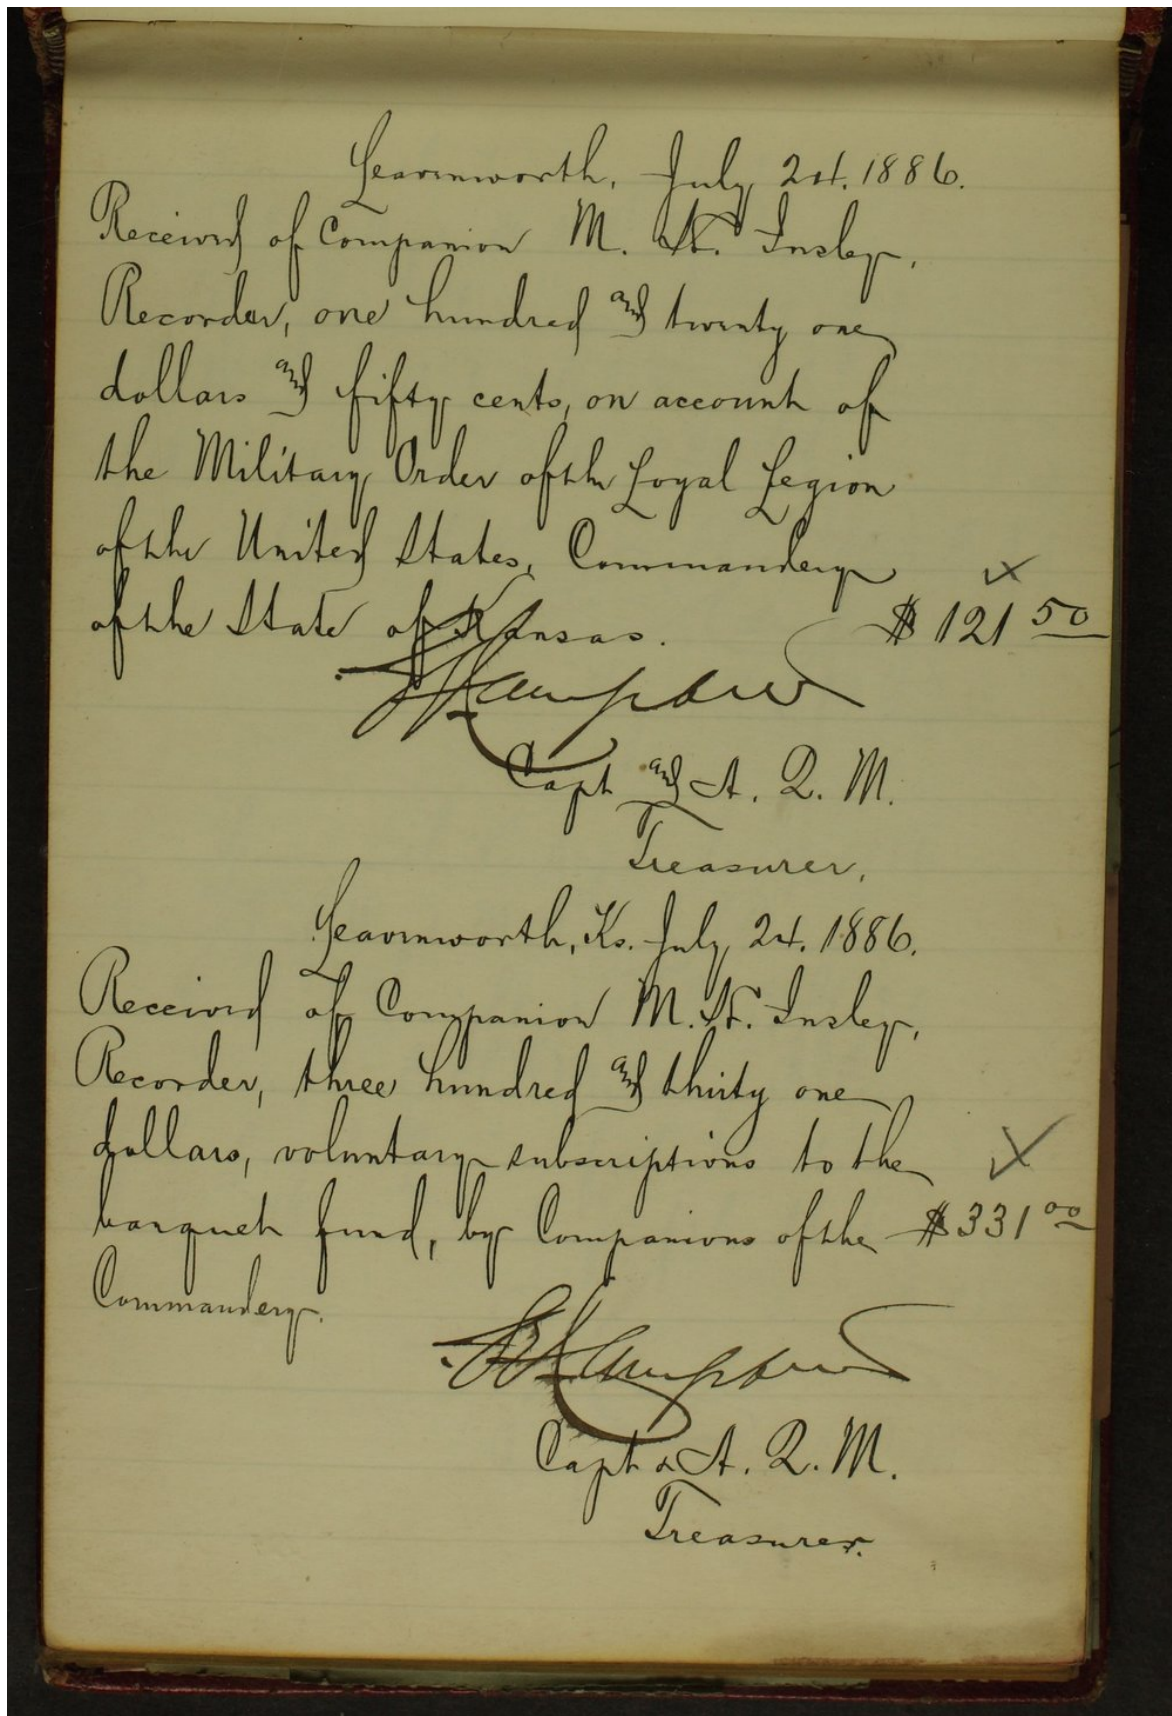 Leavenworth, July 24. 1886.
Received of Companion M. H. Insley,
Recorder, one hundred and twenty one
dollars and fifty cents, on account of
the Military Order of the Loyal Legion
of the United States, Commandery
of the State of Kansas. $121 50
Capt and A. Q. M.
Treasurer,
Leavenworth, Ks. July 24. 1886.
Received of Companion M. H. Insley,
Recorder, three hundred and thirty one
dollars, voluntary subscriptions to the
banquet fund, by Companions of the $331 00
Commandery.
Capt & A. Q. M.
Treasurer.